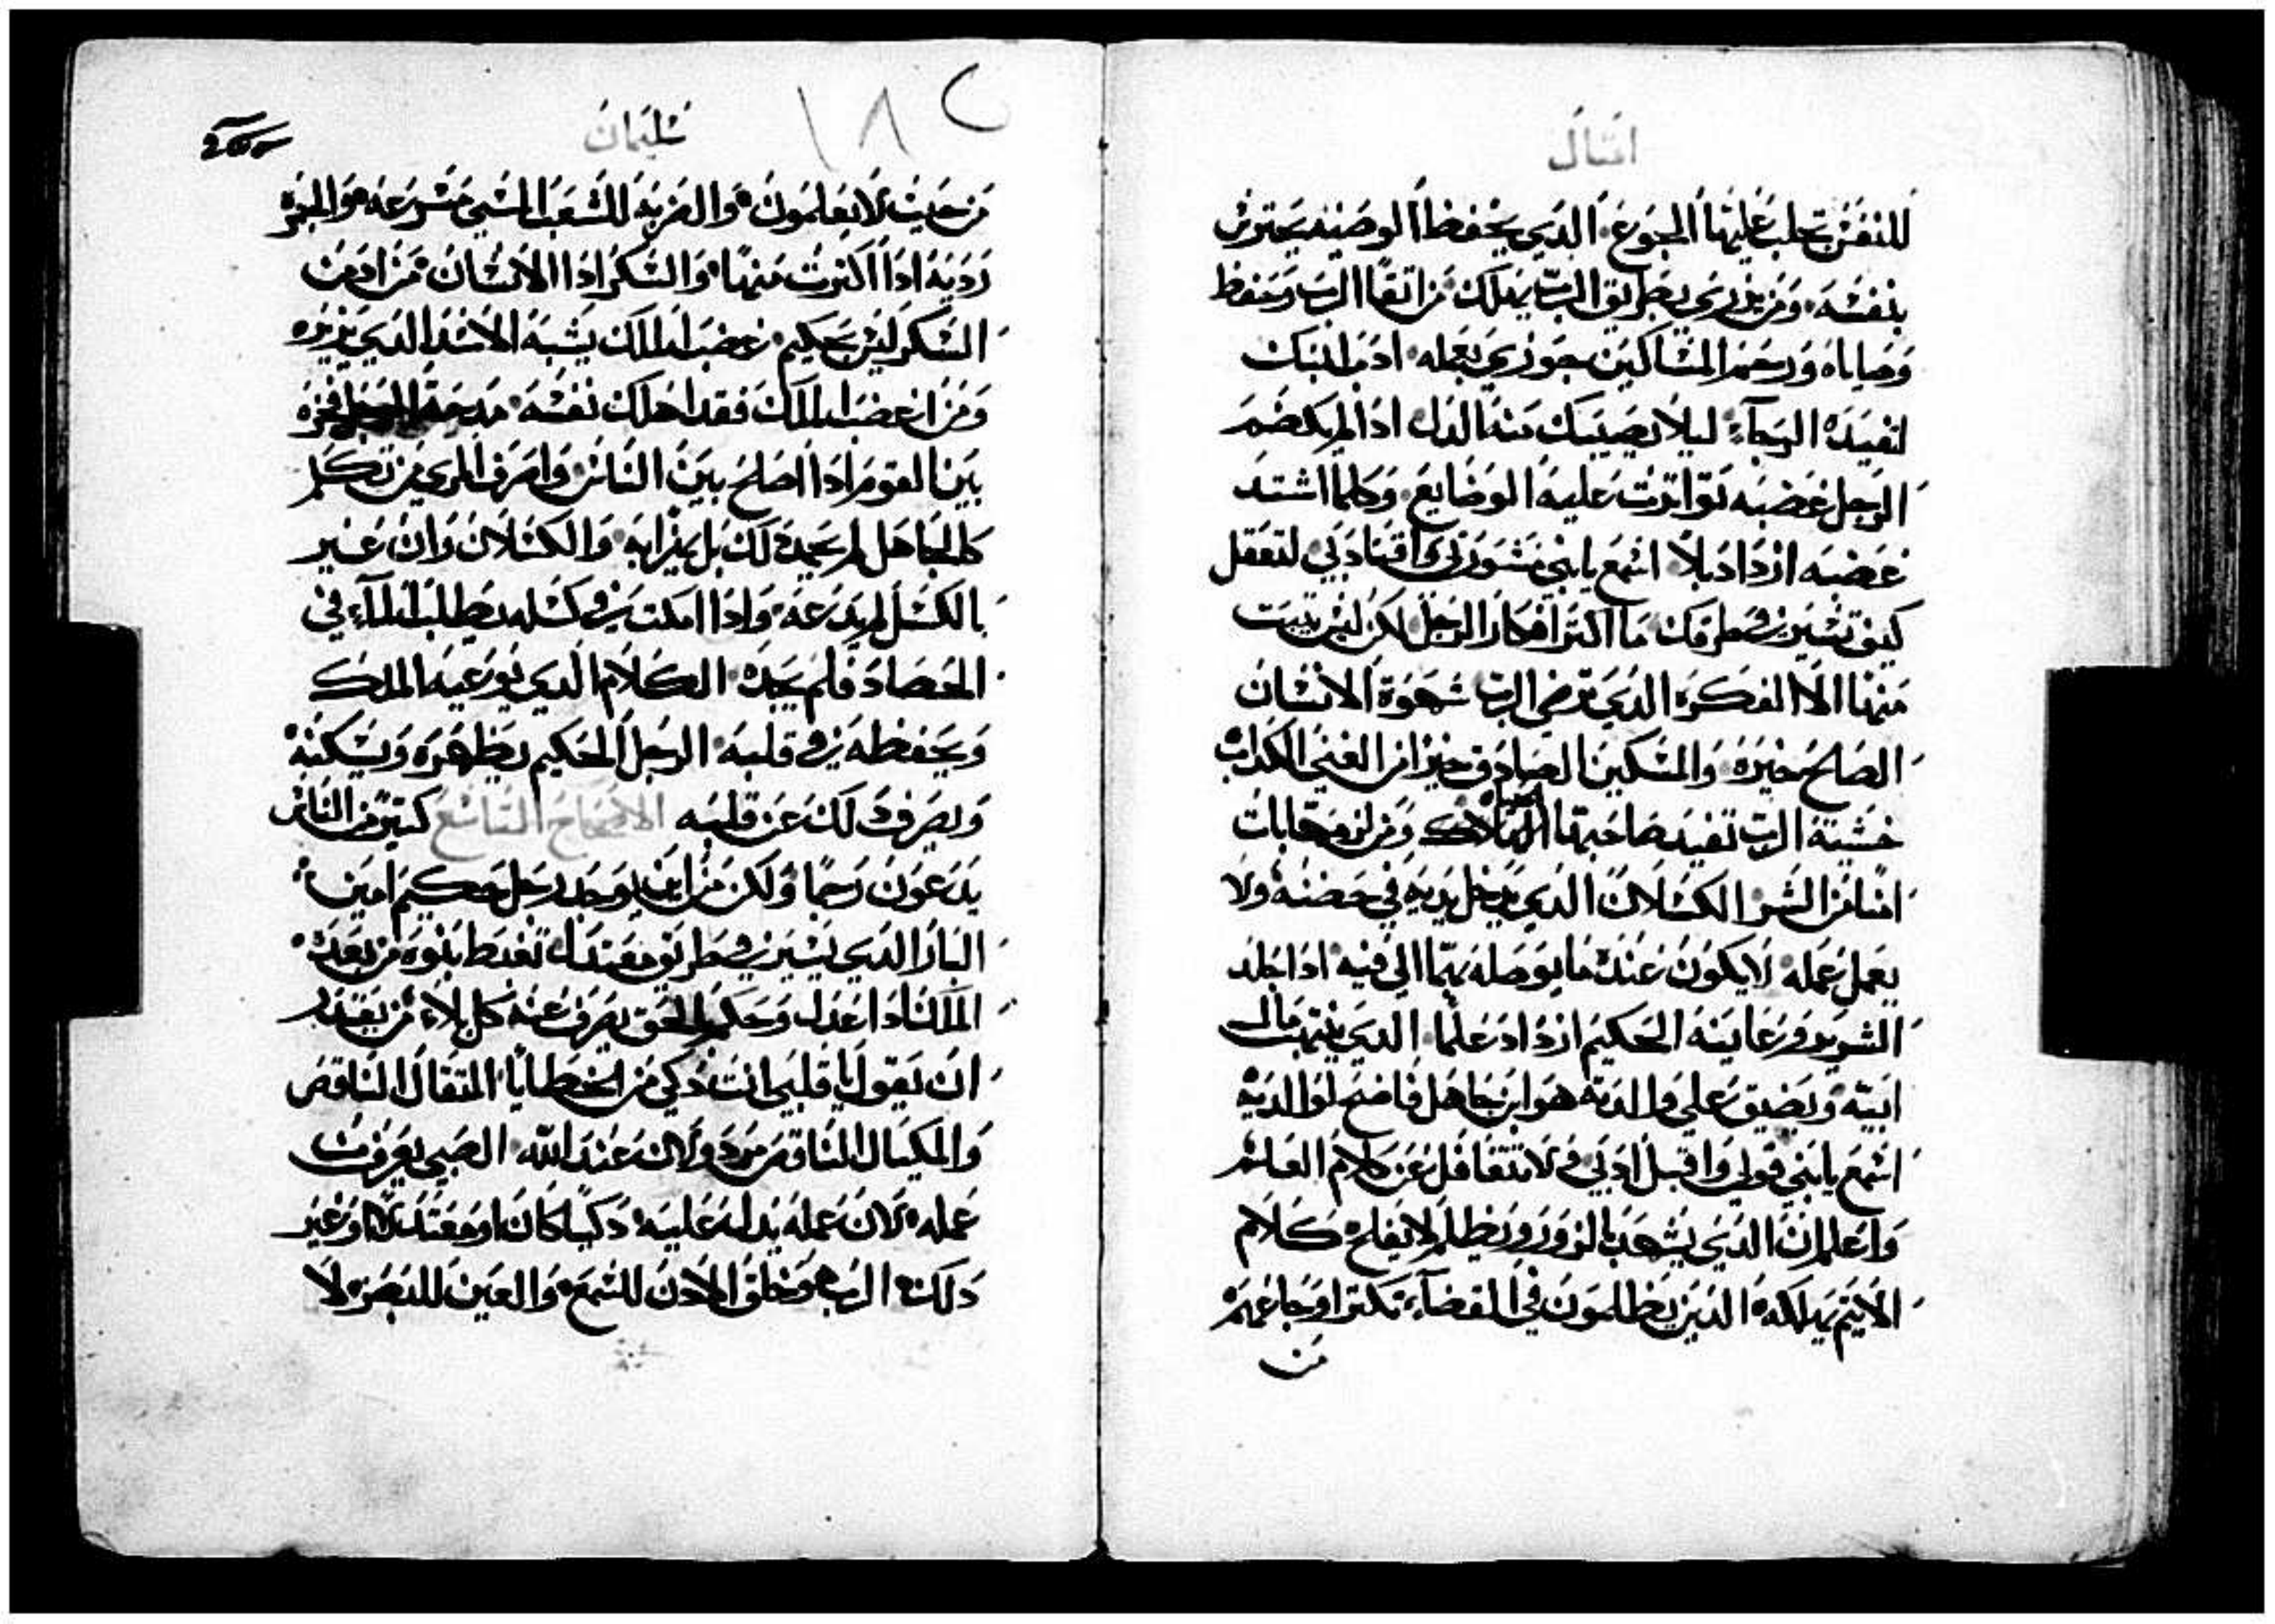 امثال
للنفس تجلب عليها الجوع. الذي يحفظ الوصيه يحترس
بنفسه. ومن يزدري بطريق الرب يهلك. من اتقا الرب وحفظ
وصاياه ورحم المساكين جوزي بعمله. ادب ابنك
لتفيده الرجآء. ليلا يصيبك منه الدل. ادا لم يكضم
الرجل غضبه تواترت عليه الوضايع. وكلما اشتد
غضبه ازداد بلا. اسمع يابني مشورتي واقنا دبي لتعقل
كيف تسير في طرقك. ما اكثر افكار الرجل لكن ليس يتبت
منها الا الفكره الدي ترضي الرب. شهوة الانسان
الصالح خيره. والمسكين الصادق خير من الغني الكداب
خشية الرب تفيد صاحبها الحياه ومن لزمها بات
امنا من الشر. الكسلان الدي يدخل يديه في حضنه ولا
يعمل عمله. لا يكون عنده ما يوصله بهما الي فيه. ادا جلد
الشرير ورعاينه الحكيم ازداد علما. الدي ينهب مال
ابيه ويضيق علي والدته هو ابن جاهل فاضح لوالديه
اسمع يابني قولي واقبل ادبي ولا تتغافل عن كلام العلم
واعلم ان الدي يشهد بالزور ويظلم لا يفلح. كلام
الاتيم يهلكه. الدين يظلمون في القضآء تكتر اوجاعهم
من
سليمان
١٨٢
من حيث لا يعلمون. والضربه للشعب المسي مسرعه. والخمره
رديه ادا اكترت منها. والسكر ادا الانسان من ادمن
السكر ليس بحكيم. غضب الملك يشبه الاسد الدي يزير
ومن اغضب الملك فقد اهلك نفسه. مدحة الرجل فخره
بين القوم ادا اصلح بين الناس. واصرف المري من تكلم
كالجاهل لم يحمد لك بل يهزا به. والكسلان وان عير
بالكسل لم يدعه. وادا امكت في كسله يطلب الماء في
الحصاد فلم يجده. الكلام الدي يوعيه الملك
ويحفظه في قلبه. الرجل الحكيم يظهره ويسكنه
ويصرف دلك عن قلبه الاصحاح التاسع كتير من الناس
يدعون رحما ولكن من اين يوجد رجل حكيم امين
البار الدي يسير في طريق معتدل تغبط بنوه من بعده
الملك ادا عدل وحكم بالحق يصرف عنه كل بلاء. من يقدر
ان يقول يا قلبي انت دكي من الخطايا. المتقال الناقص
والمكيال الناقص مردولان عند الله. الصبي يعرف من
عمله. لان عمله يدل عليه. دكيا كان او معتدلا او غير
دلك. الرب هو خلق الادن للسمع. والعين للبصر. لا